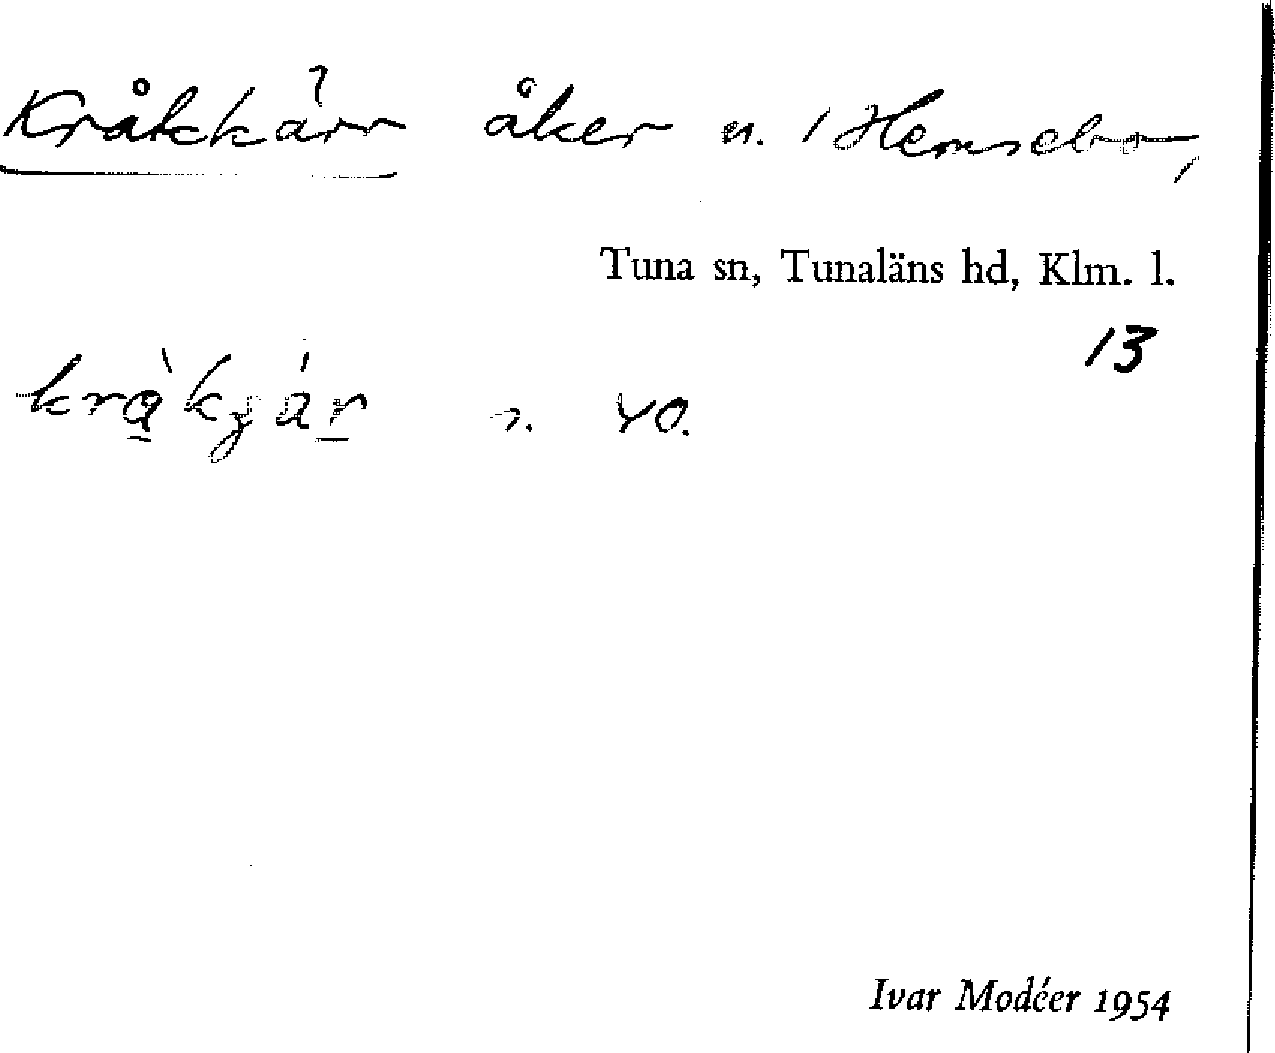 Kråkkärr åker n. / Hemsebo,
Tuna sn, Tunaläns hd, Klm. l.
13
40.
Ivar Modéer 1954